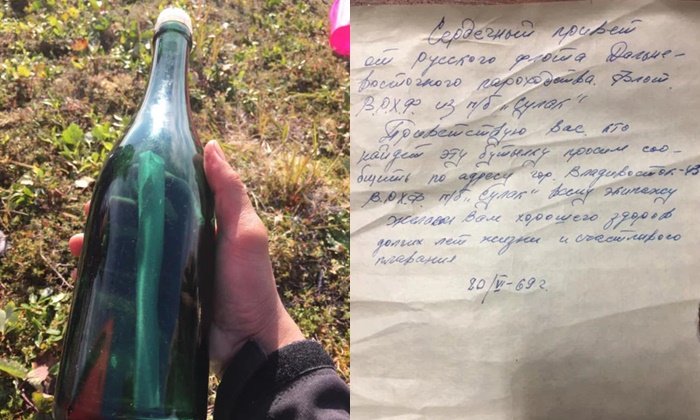 Сердечный привет
от Русского флота Дальне-
восточного пароходства. Флот.
В.Р.Х.Ф. из п/б "Сулак"
Приветствую Вас, кто
найдет эту бутылку просим соо-
бщить по адресу гор. Владивосток-43
В.Р.Х.Ф. п/б "Сулак" всему экипажу
желаем Вам хорошего здоров
долгих лет жизни и счастливого
плавания
20/VI-69 г.